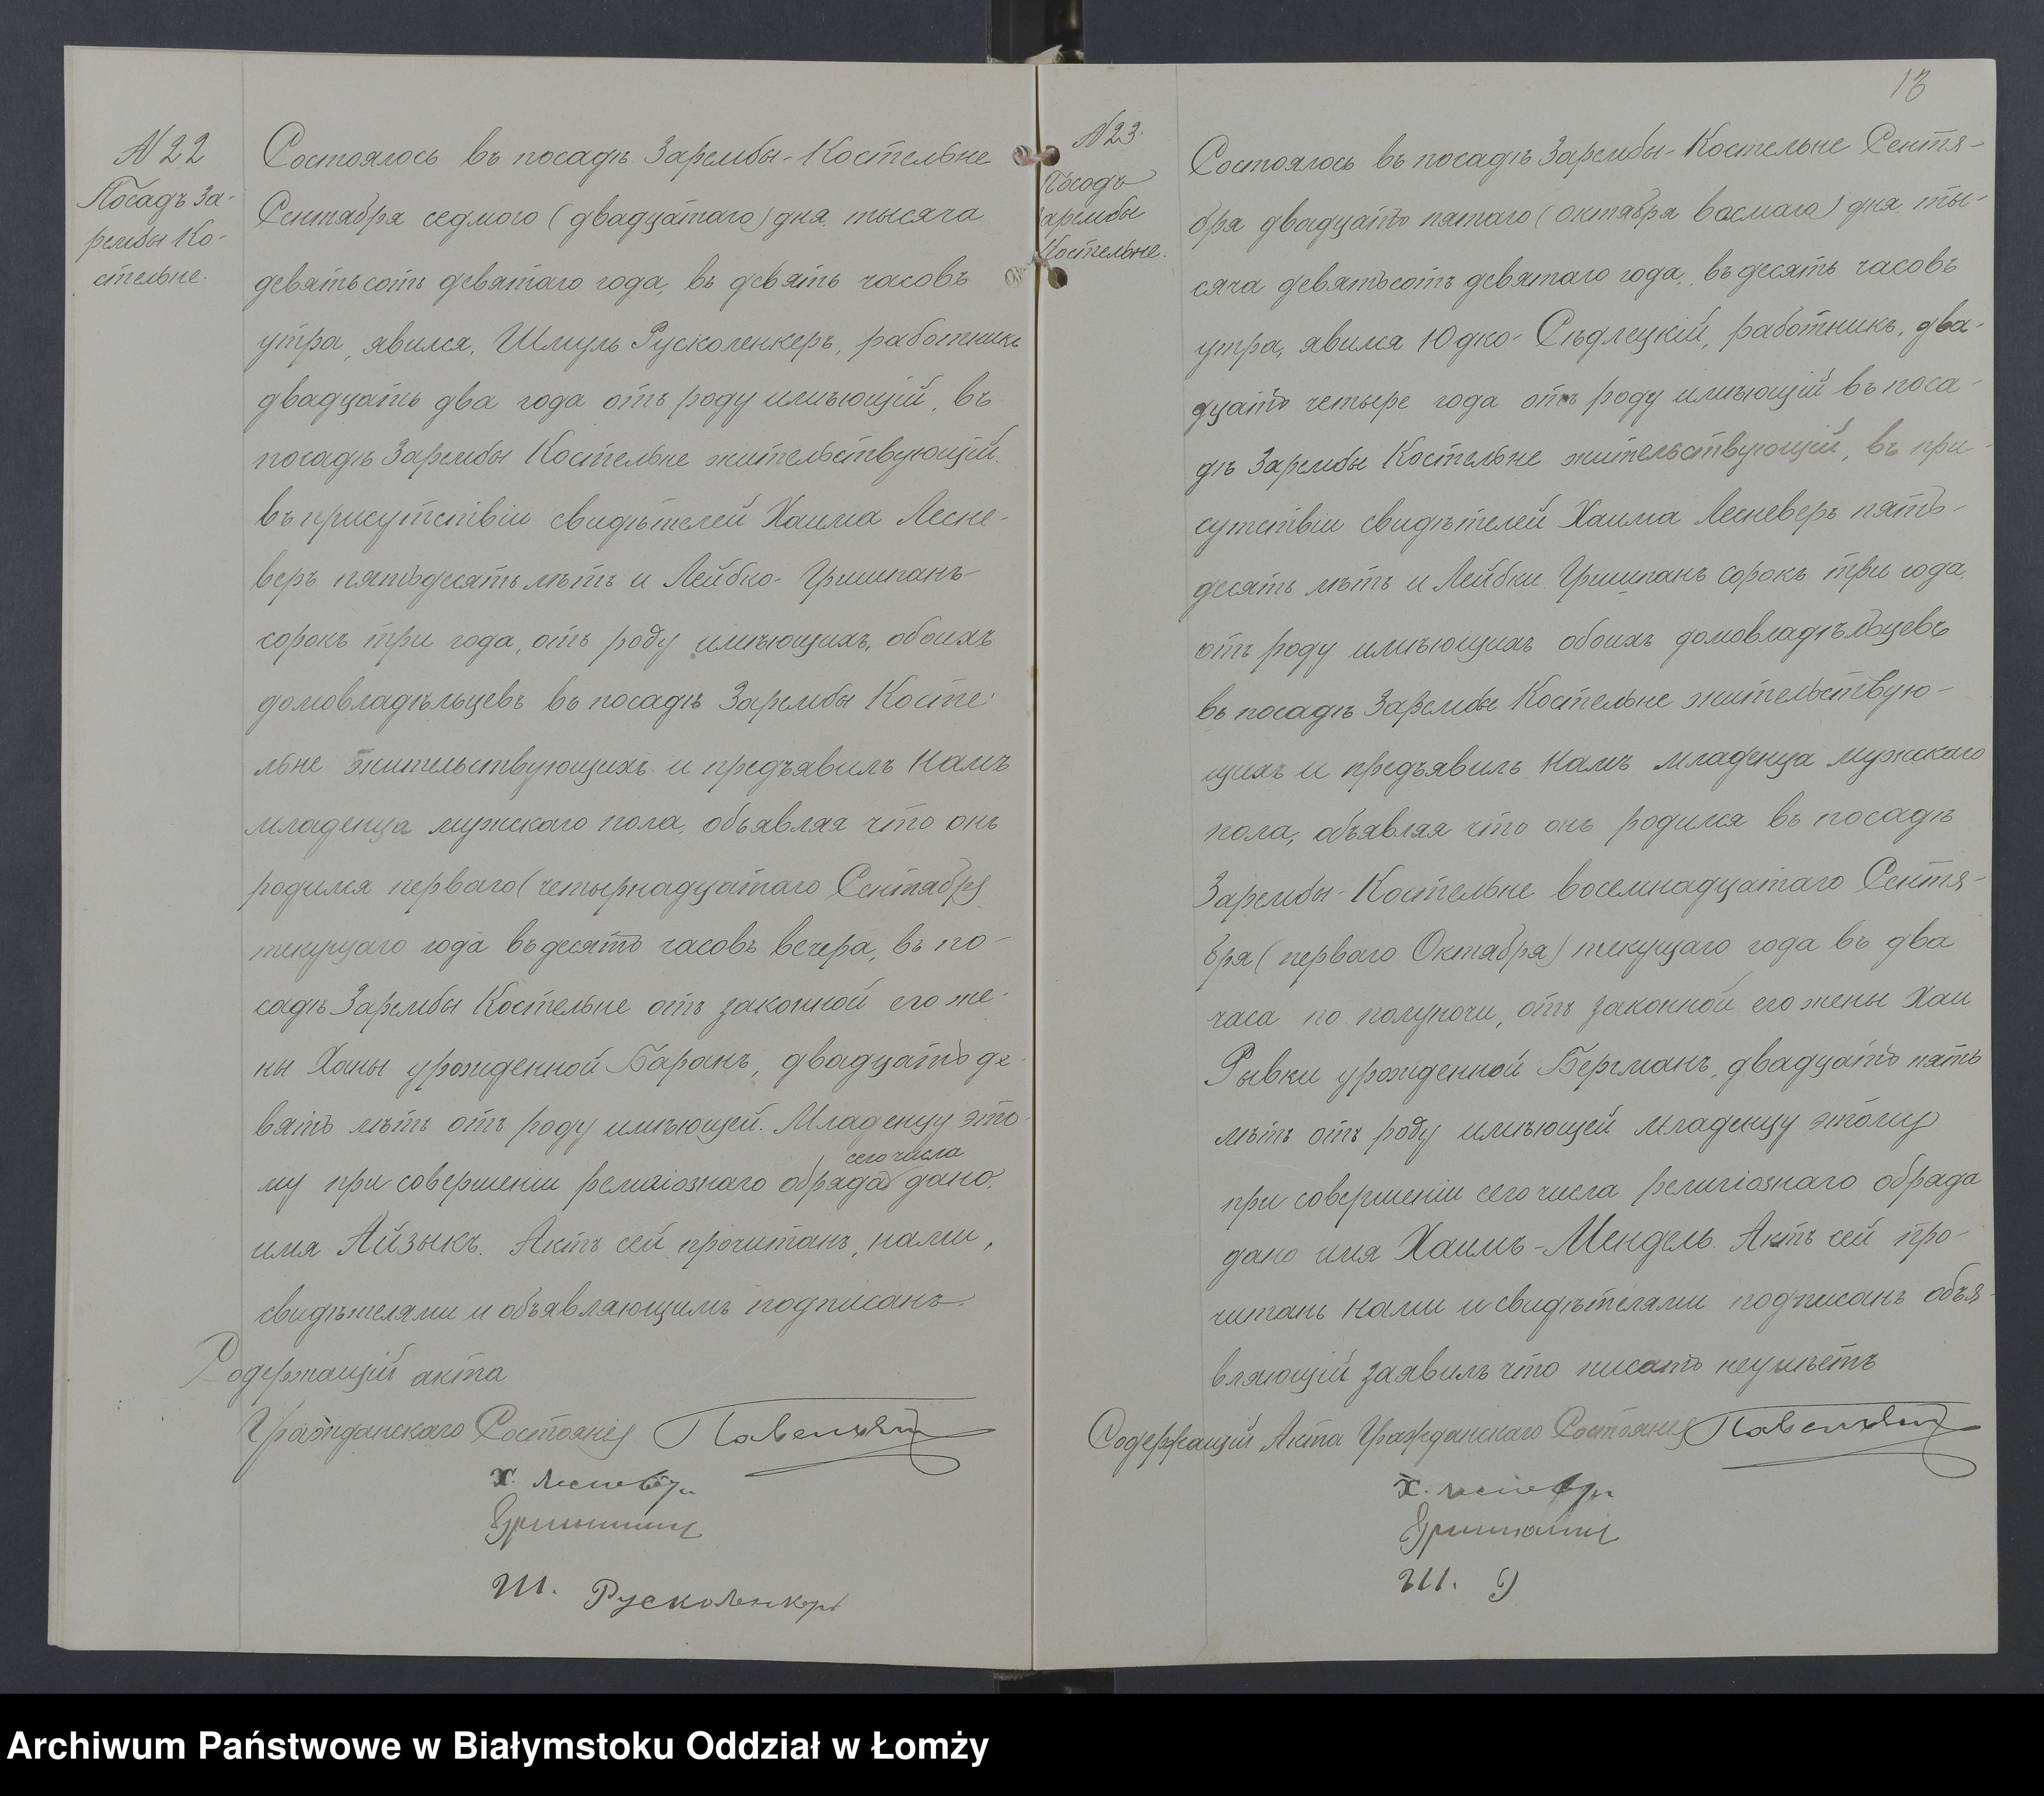 N 22
Посадъ За-
рембы Ко-
стельне.
Состоялось въ посадѣ Зарембы-Костельне
Сентября седмого (двадцатаго) дня тысяча
девятьсотъ девятаго года, въ девять часовъ
утра, явился, Шмуль Русколенкеръ, работникъ
двадцать два года отъ роду имѣющій, въ
посадѣ Зарембы Костельне жительствующій
въ присутствіи свидѣтелей Хаима Лесне-
веръ пятьдесятъ лѣтъ и Лейбко-Гришпанъ
сорокъ три года, отъ роду имѣющихъ, обоихъ
домовладѣльцевъ въ посадѣ Зарембы Косте-
льне жительствующихъ и предъявилъ намъ
младенца мужскаго пола, объявляя что онъ
родился перваго (четырнадцатаго Сентября
текущаго года въ десять часовъ вечера, въ по-
садѣ Зарембы Костельне отъ законной его же-
ны Ханы урожденной Баранъ, двадцать де-
вять лѣтъ отъ роду имѣющей. Младенцу это-
сего числа
му при совершеніи религіознаго обряда дано
имя Айзыкъ. Актъ сей прочитанъ, нами,
свидѣтелями и объявляющимъ подписанъ.
Содержащій акта
Гражданскаго Состоянія
Х. Лесневеръ
Гришпанъ
Ш. Русколенкеръ
13
N 23.
Посадъ
Зарембы
Костельне.
Состоялось въ посадѣ Зарембы-Костельне Сентя-
бря двадцать пятаго (октября восмаго) дня ты-
сяча девятьсотъ девятаго года, въ десять часовъ
утра, явился Юдко-Сѣдлецкій, работникъ, два-
дцать четыре года отъ роду имѣющій въ поса-
дѣ Зарембы Костельне жительствующій, въ при-
сутствіи свидѣтелей Хаима Лесневеръ пять-
десятъ лѣтъ и Лейбки Гришпанъ сорокъ три года
отъ роду имѣющихъ обоихъ домовладѣльцевъ
въ посадѣ Зарембы Костельне жительствую-
щихъ и предъявилъ намъ младенца мужскаго
пола, объявляя что онъ родился въ посадѣ
Зарембы-Костельне восемнадцатаго Сентя-
бря (перваго Октября) текущаго года въ два
часа по полуночи, отъ законной его жены Хаи
Рывки урожденной Бергманъ, двадцать пять
лѣтъ отъ роду имѣющей младенцу этому
при совершеніи сего числа религіознаго обряда
дано имя Хаимъ-Мендель. Актъ сей про-
читанъ нами и свидѣтелями подписанъ объя-
вляющій заявилъ что писать неумѣетъ
Содержащій Акта Гражданскаго Состоянія
Х. Лесневеръ
Гришпанъ
Ш. Р
Archiwum Państwowe w Białymstoku Oddział w Łomży